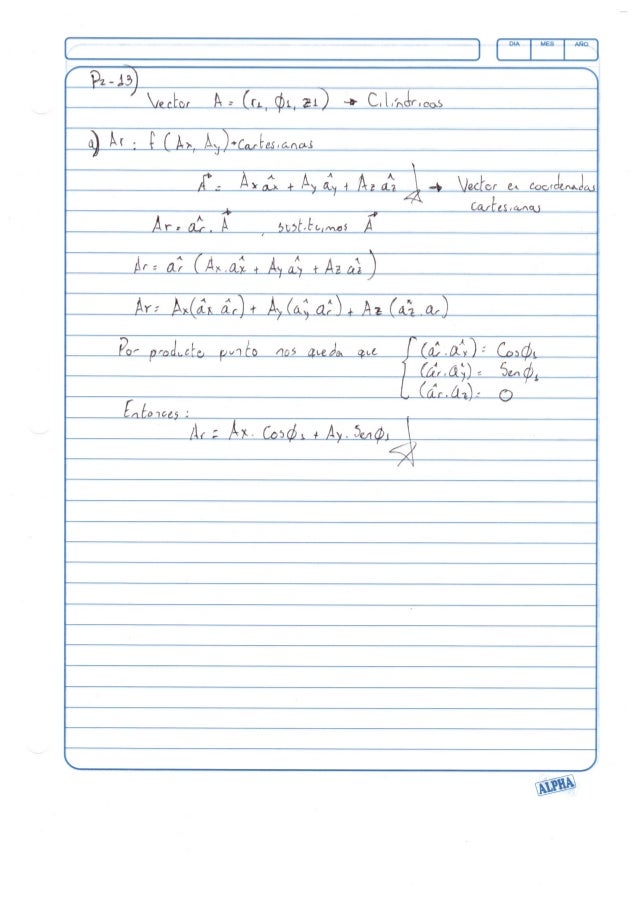 DIA MES AÑO
P2-13)
Vector A = (r1, ϕ1, z1) → Cilíndricas
a) Ar: f (Ax, Ay) → Cartesianas
A = Ax âx + Ay ây + Az âz → Vector en coordenadas
cartesianas
Ar = âr . A , sustituimos A
Ar = âr (Ax.âx + Ay ây + Az âz)
Ar: Ax(âx âr) + Ay(ây âr) + Az (âz . ar)
Por producto punto nos queda que { (âr.âx) = Cosϕ1
(âr.ây) = Senϕ1
(âr.âz) = 0
Entonces:
Ar = Ax. Cosϕ1 + Ay. Senϕ1
ALPHA